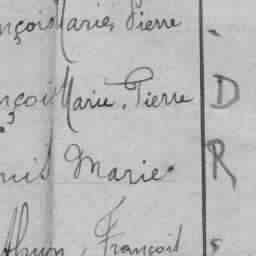 nçois Marie, Pierre
nçois Marie, Pierre D
uis Marie. R
thurn, François s